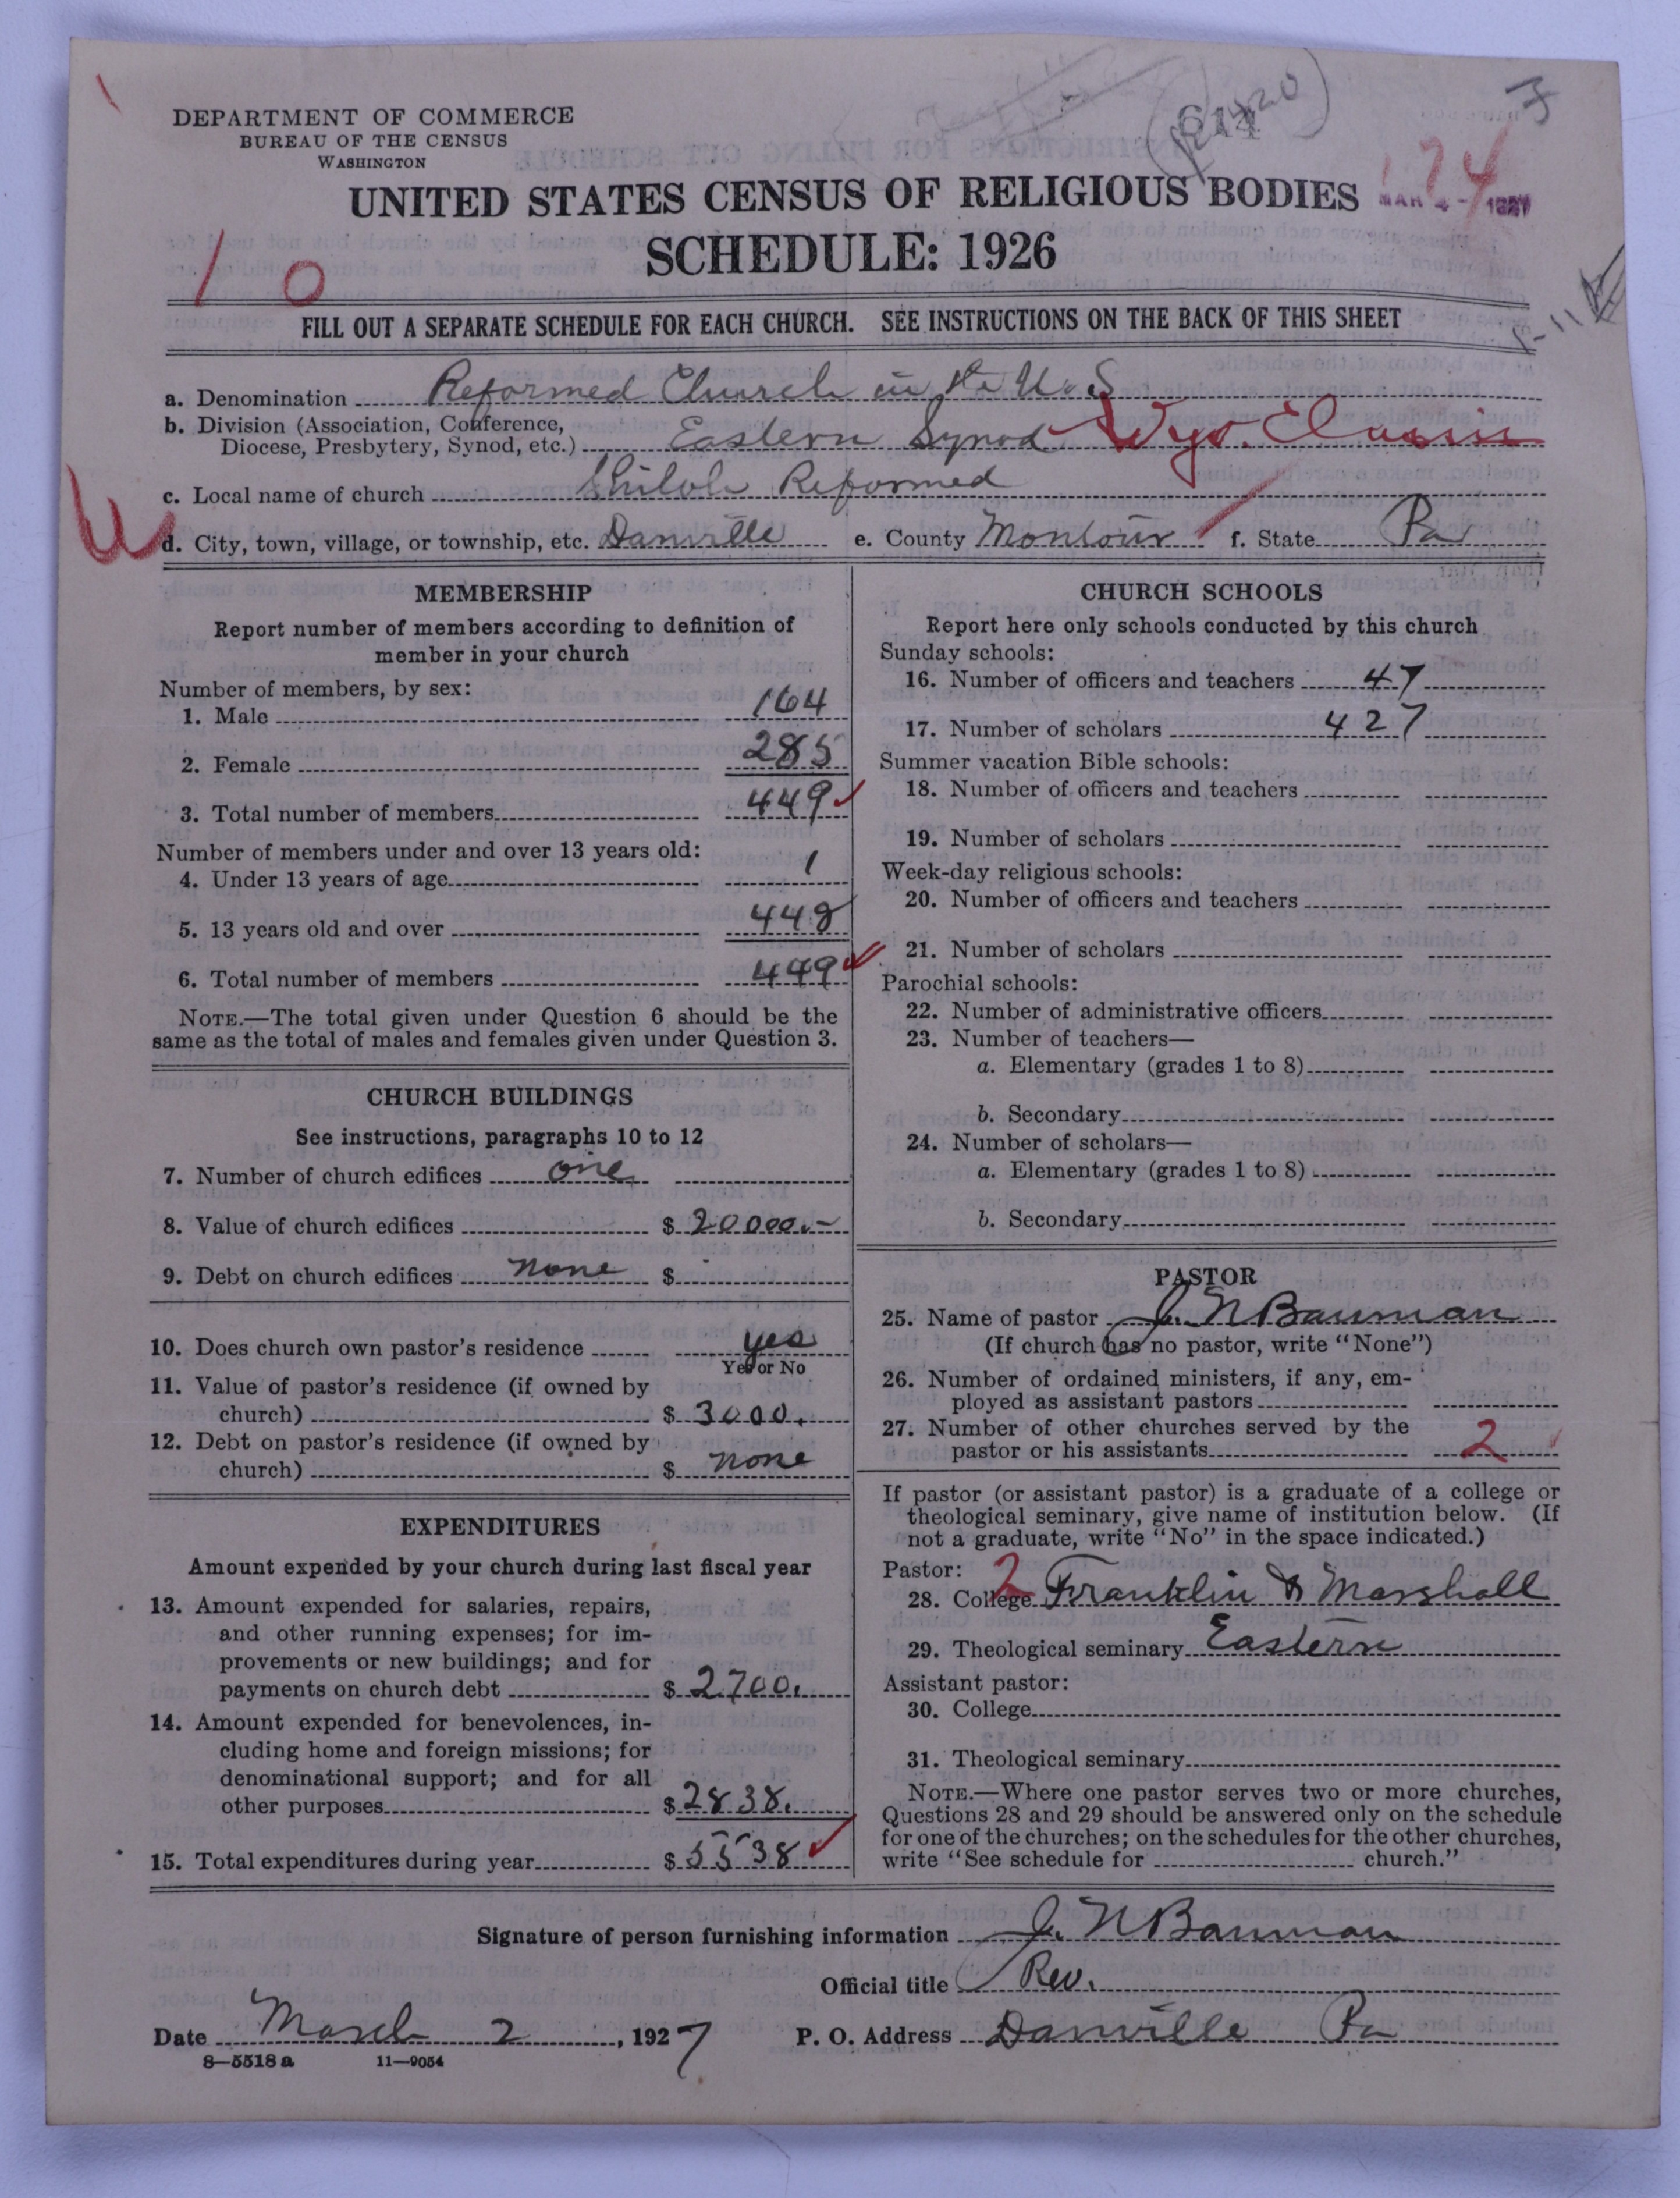 DEPARTMENT OF COMMERCE
BUREAU OF THE CENSUS
WASHINGTON
614
UNITED STATES CENSUS OF RELIGIOUS BODIES
MAR 4 - 1927
SCHEDULE: 1926
1 0
FILL OUT A SEPARATE SCHEDULE FOR EACH CHURCH. SEE INSTRUCTIONS ON THE BACK OF THIS SHEET
a. Denomination Reformed Church in the U. S
b. Division (Association, Conference,
Diocese, Presbytery, Synod, etc.) Eastern Synod Wyo. Classis
c. Local name of church Shiloh Reformed
d. City, town, village, or township, etc. Danville e. County Montour f. State Pa
MEMBERSHIP
Report number of members according to definition of
member in your church
Number of members, by sex:
1. Male 164
2. Female 285
3. Total number of members 449
Number of members under and over 13 years old:
4. Under 13 years of age 1
5. 13 years old and over 448
6. Total number of members 449
NOTE.—The total given under Question 6 should be the
same as the total of males and females given under Question 3.
CHURCH BUILDINGS
See instructions, paragraphs 10 to 12
7. Number of church edifices one
8. Value of church edifices $ 20000.-
9. Debt on church edifices none $
10. Does church own pastor's residence yes
Yes or No
11. Value of pastor's residence (if owned by
church) $ 3000.
12. Debt on pastor's residence (if owned by
church) $ none
EXPENDITURES
Amount expended by your church during last fiscal year
13. Amount expended for salaries, repairs,
and other running expenses; for im-
provements or new buildings; and for
payments on church debt $ 2700.
14. Amount expended for benevolences, in-
cluding home and foreign missions; for
denominational support; and for all
other purposes $ 2838.
15. Total expenditures during year $ 5538
CHURCH SCHOOLS
Report here only schools conducted by this church
Sunday schools:
16. Number of officers and teachers 47
17. Number of scholars 427
Summer vacation Bible schools:
18. Number of officers and teachers
19. Number of scholars
Week-day religious schools:
20. Number of officers and teachers
21. Number of scholars
Parochial schools:
22. Number of administrative officers
23. Number of teachers—
a. Elementary (grades 1 to 8)
b. Secondary
24. Number of scholars—
a. Elementary (grades 1 to 8)
b. Secondary
PASTOR
25. Name of pastor J. N Bauman
(If church has no pastor, write "None")
26. Number of ordained ministers, if any, em-
ployed as assistant pastors
27. Number of other churches served by the
pastor or his assistants 2
If pastor (or assistant pastor) is a graduate of a college or
theological seminary, give name of institution below. (If
not a graduate, write "No" in the space indicated.)
Pastor:
28. College 2 Franklin & Marshall
29. Theological seminary Eastern
Assistant pastor:
30. College
31. Theological seminary
NOTE.—Where one pastor serves two or more churches,
Questions 28 and 29 should be answered only on the schedule
for one of the churches; on the schedules for the other churches,
write "See schedule for church."
Signature of person furnishing information J. N Bauman
Official title Rev.
Date March 2, 1927 P. O. Address Danville Pa
8—5518 a 11—9054